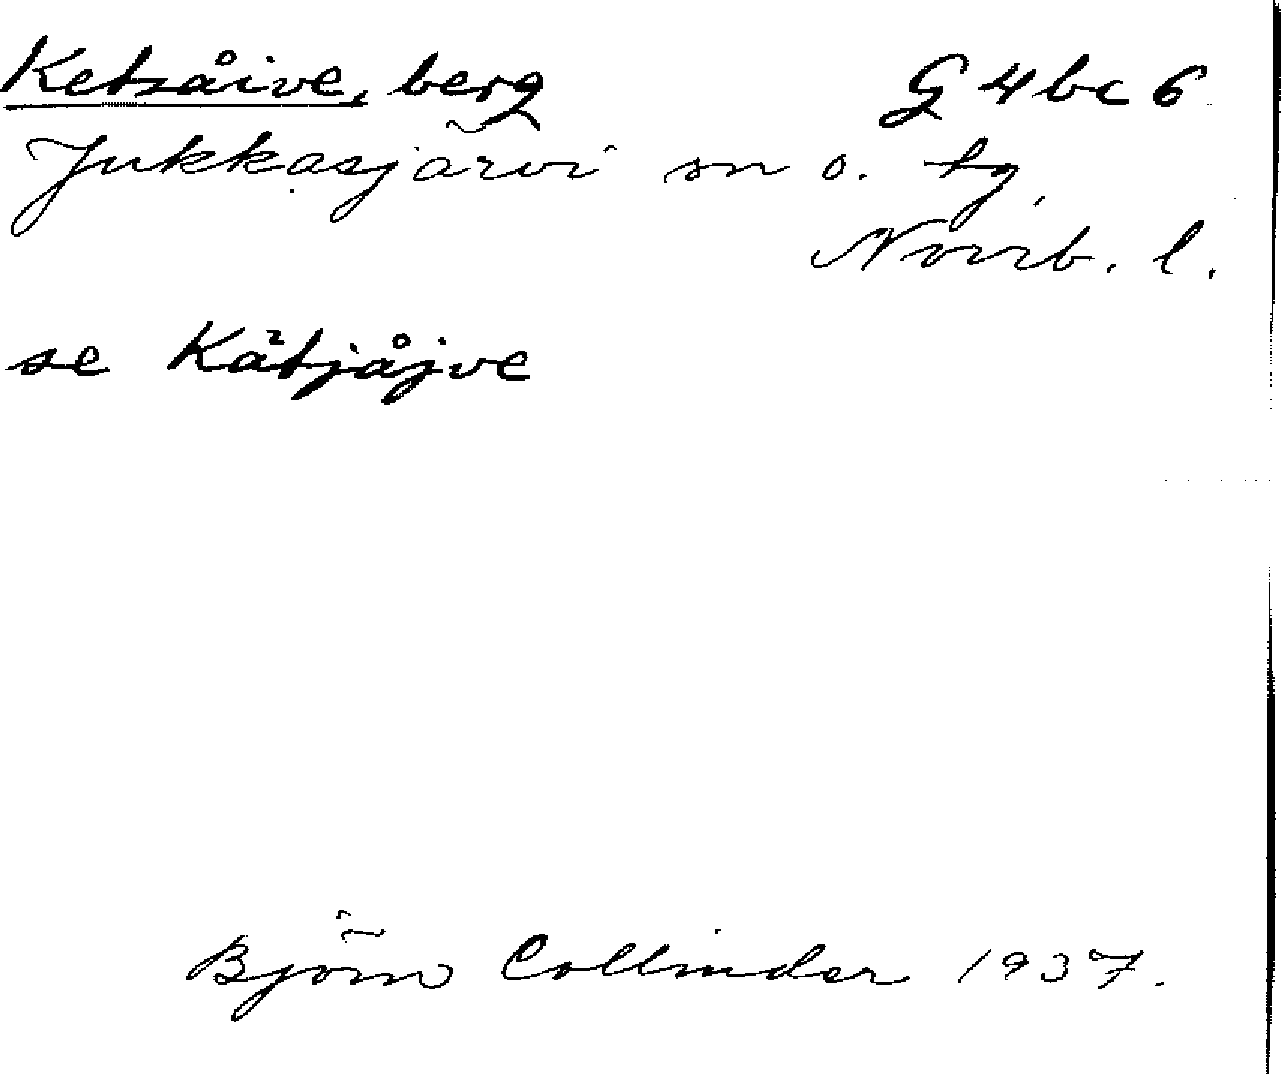 Ketsåive, berg G 4 bc 6
Jukkasjärvi sn o. tg,
Norrb. l.
se Kätjåjve
Björn Collinder 1937.